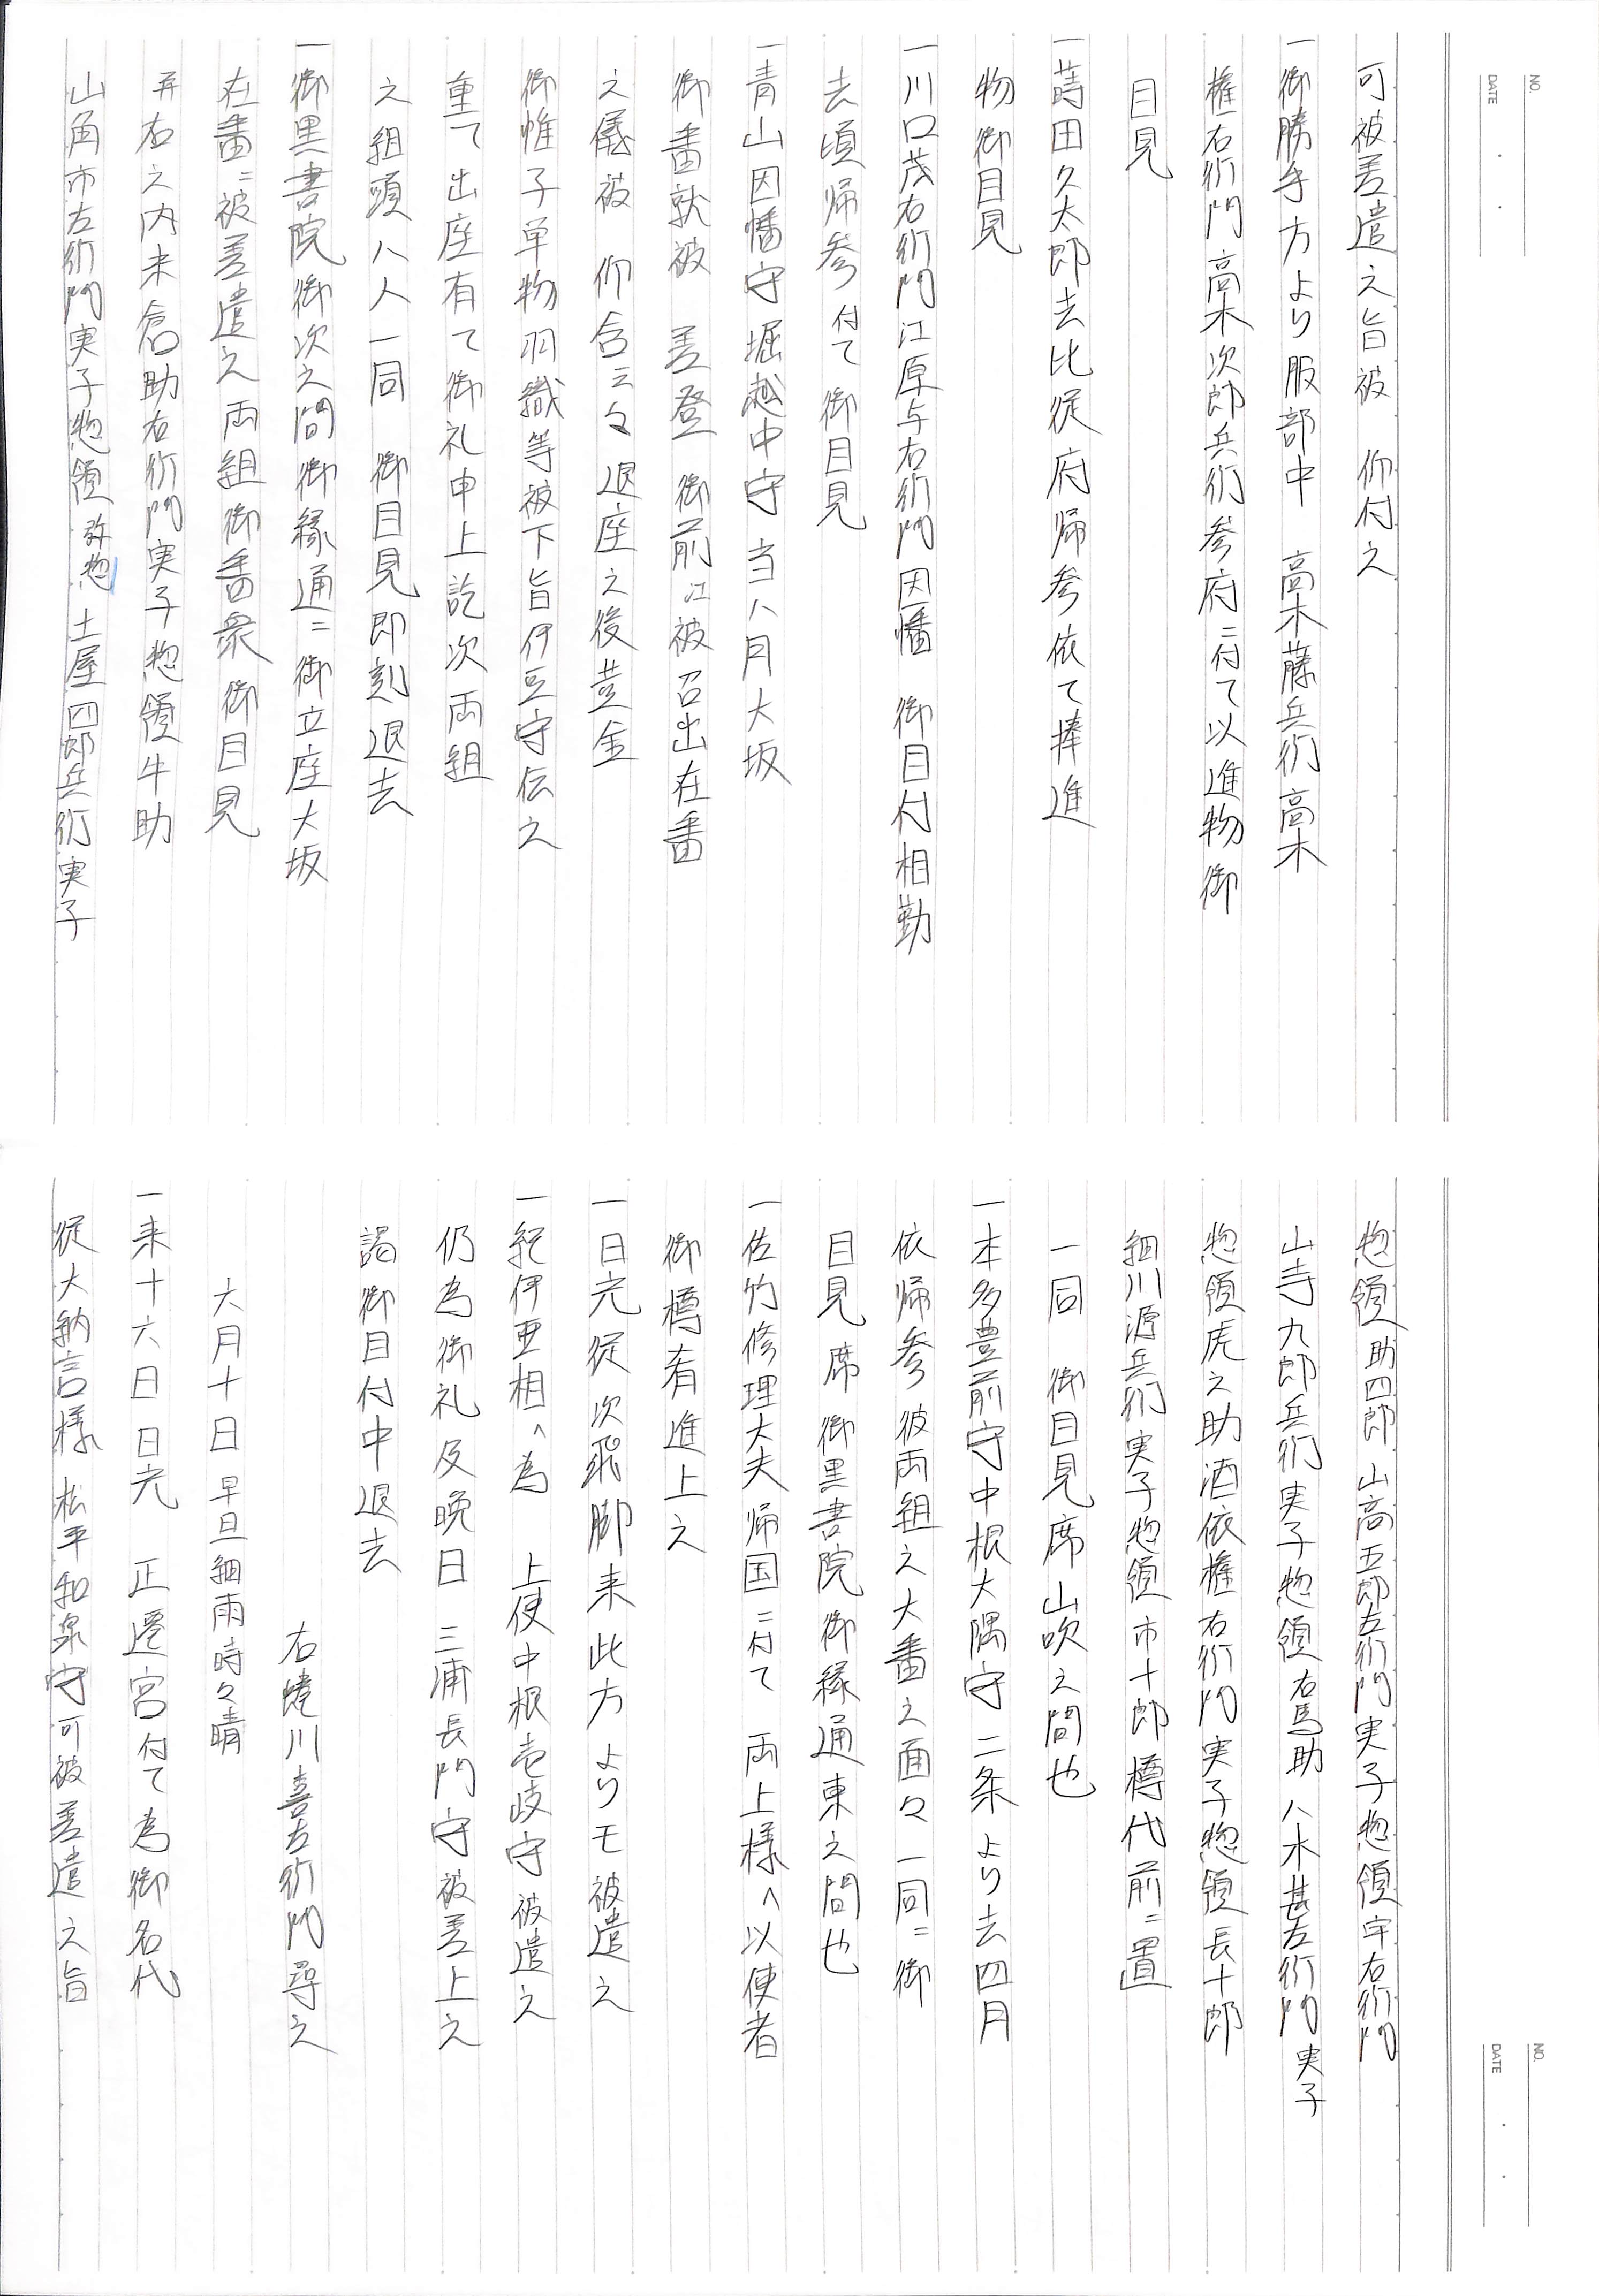 NO.
DATE
可被差遣之旨被 仰付之
一御勝手方より服部中 高木藤兵衛 高木
権右衛門 高木次郎兵衛参府ニ付て以進物御
目見
一蒔田久太郎去比従府帰参依て捧進
物御目見
一川口茂右衛門江原与右衛門因幡 御目付相勤
去頃帰参付て御目見
一青山因幡守堀越中守当八月大坂
御番就被 差登 御前江被召出在番
之儀被 仰含云々退座之後黄金
御帷子単物羽織等被下旨伊豆守伝之
重て出座有て御礼申上訖次両組
之組頭八人一同 御目見即刻退去
一御黒書院御次之間御縁通ニ御立座大坂
在番ニ被差遣之両組御番衆御目見
并右之内末倉助右衛門実子惣領牛助
山角市左衛門実子惣領弥惣 土屋四郎兵衛実子
NO.
DATE
惣領助四郎 山高五郎左衛門実子惣領宇右衛門
山寺九郎兵衛実子惣領右馬助 八木甚左衛門実子
惣領虎之助酒依権右衛門実子惣領長十郎
細川源兵衛実子惣領市十郎樽代前ニ置
一同 御目見席山吹之間也
一本多豊前守中根大隅守二条より去四月
依帰参彼両組之大番之面々一同ニ御
目見席御黒書院御縁通東之間也
一佐竹修理大夫帰国ニ付て 両上様へ以使者
御樽肴進上之
一日光従次飛脚来此方よりモ被遣之
一紀伊亜相へ為 上使中根壱岐守被遣之
仍為御礼及晩日三浦長門守被差上之
謁御目付中退去
右蜷川喜左衛門尋之
六月十日 早旦細雨時々晴
一来十六日日光 正遷宮付て為御名代
従大納言様 松平和泉守可被差遣之旨